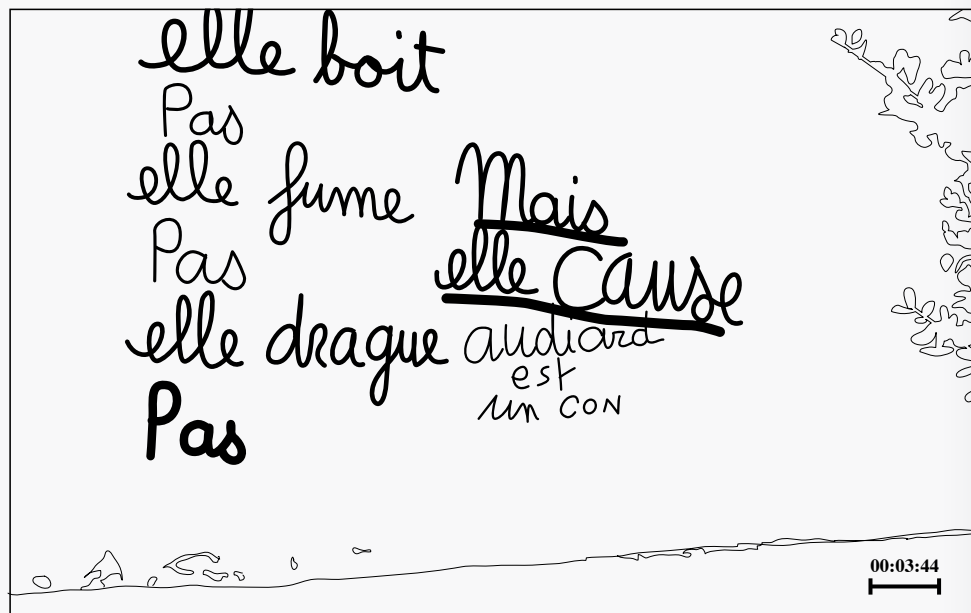 elle boit
Pas
elle fume
Pas
elle drague
Pas
Mais
elle Cause
audiard
est
un con
00:03:44